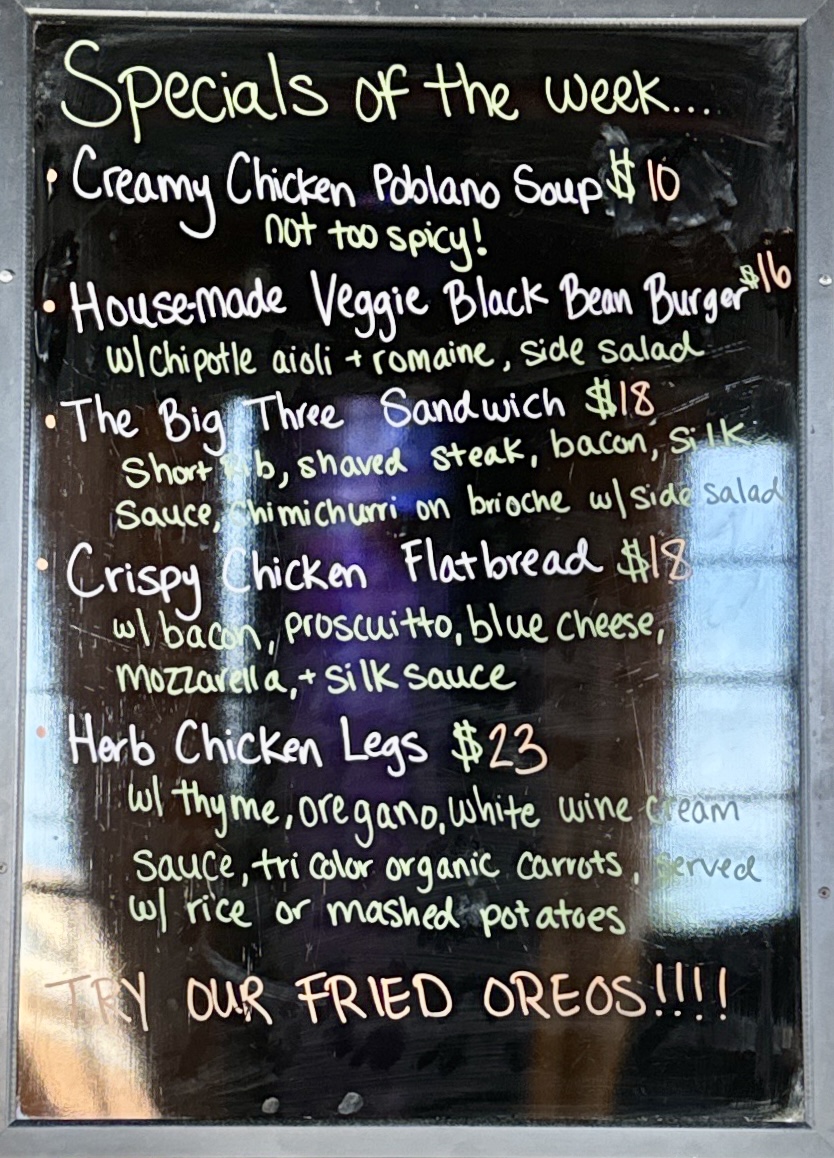 Specials of the week....
• Creamy Chicken Poblano Soup $10
not too spicy!
• House-made Veggie Black Bean Burger $16
w/ chipotle aioli + romaine, side salad
• The Big Three Sandwich $18
Short Rib, shaved steak, bacon, silk
sauce, chimichurri on brioche w/ side salad
• Crispy Chicken Flatbread $18
w/ bacon, proscuitto, blue cheese,
mozzarella, + silk sauce
• Herb Chicken Legs $23
w/ thyme, oregano, white wine cream
sauce, tri color organic carrots, served
w/ rice or mashed potatoes
TRY OUR FRIED OREOS!!!!